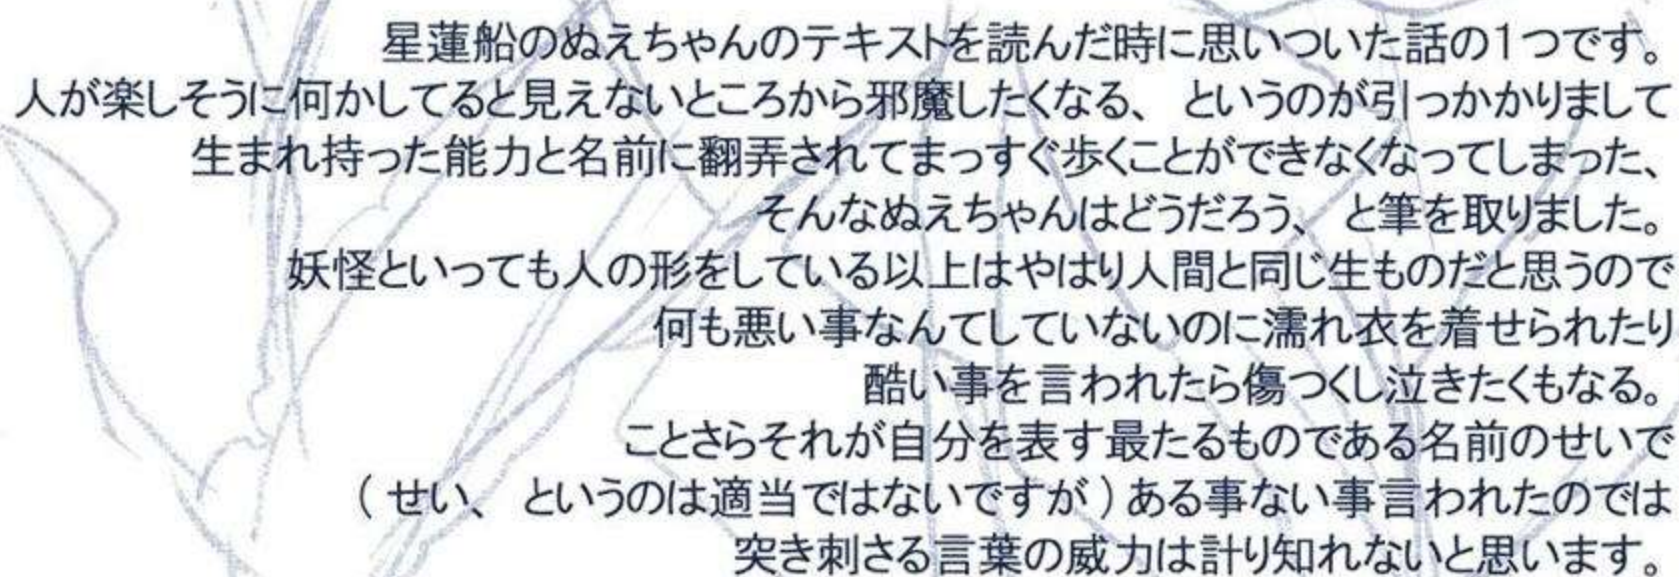 星蓮船のぬえちゃんのテキストを読んだ時に思いついた話の1つです。
人が楽しそうに何かしてると見えないところから邪魔したくなる、というのが引っかかりまして
生まれ持った能力と名前に翻弄されてまっすぐ歩くことができなくなってしまった、
そんなぬえちゃんはどうだろう、と筆を取りました。
妖怪といっても人の形をしている以上はやはり人間と同じ生ものだと思うので
何も悪い事なんてしていないのに濡れ衣を着せられたり
酷い事を言われたら傷つくし泣きたくもなる。
ことさらそれが自分を表す最たるものである名前のせいで
(せい、というのは適当ではないですが)ある事ない事言われたのでは
突き刺さる言葉の威力は計り知れないと思います。